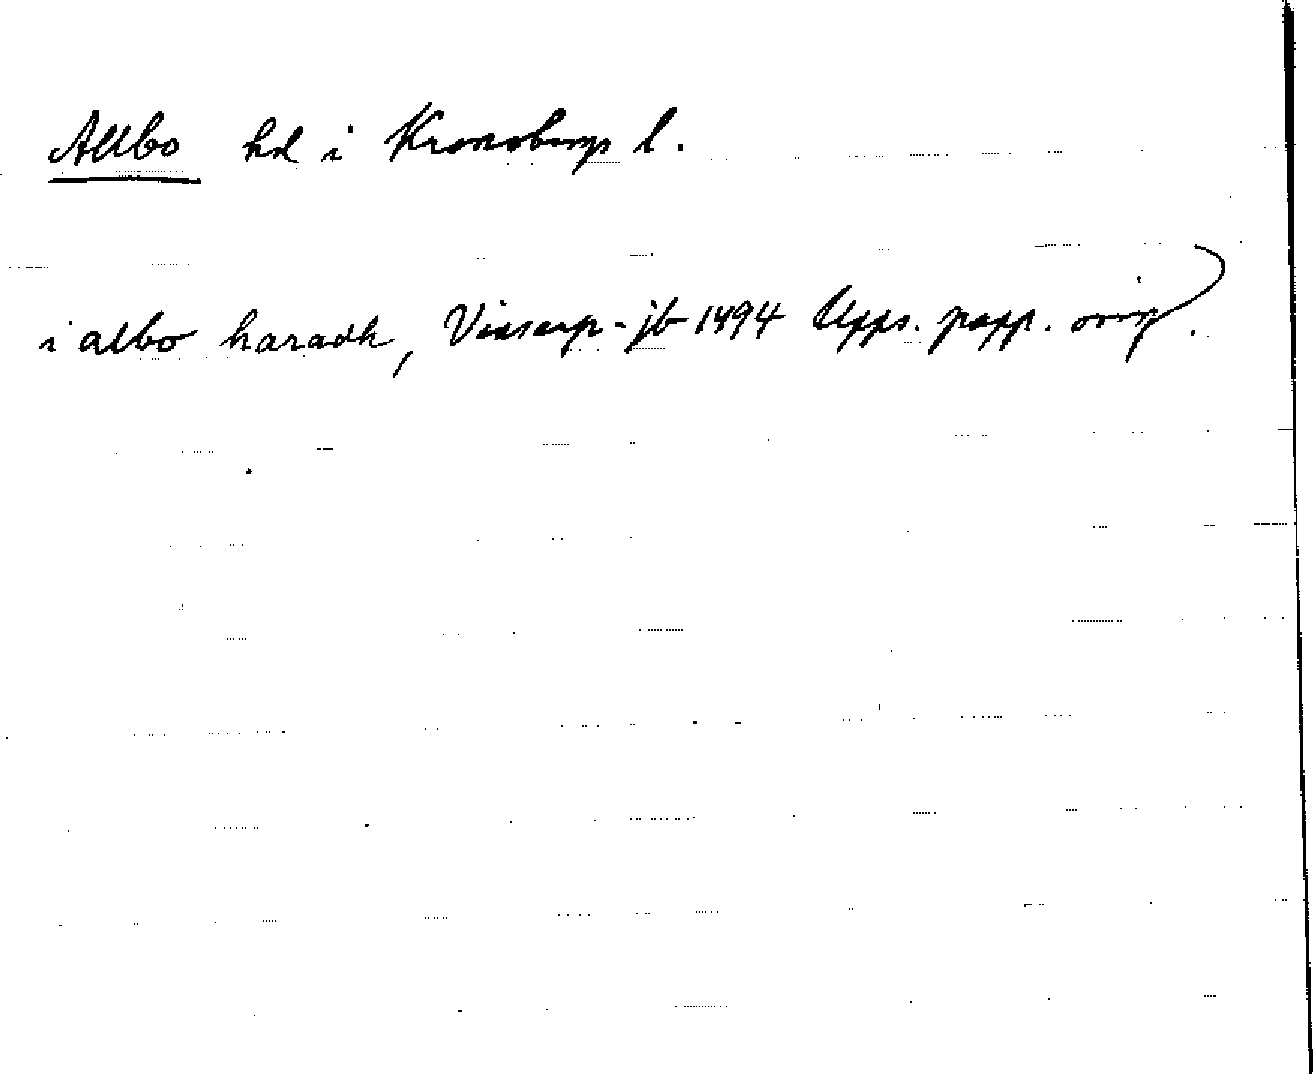 Allbo hd i Kronobergs l.
i albo haradh, Vinserp-jb 1494 Upps. papp. orig.